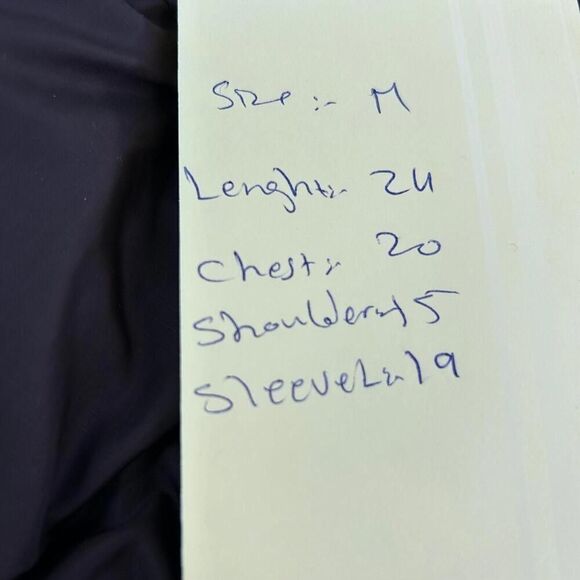 Size :- M
Lenght:- 24
Chest:- 20
Shoulder:-15
SleeveL:-19